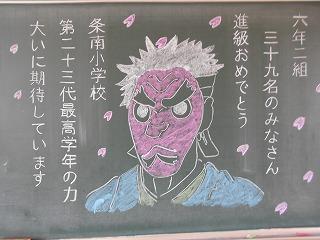 六年二組
三十九名のみなさん
進級おめでとう
条南小学校
第二十三代最高学年の力
大いに期待しています